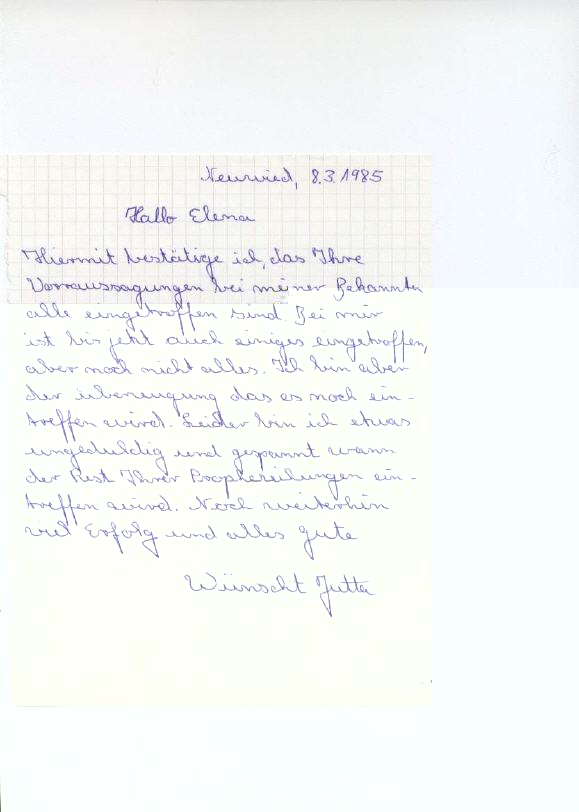 Neuwied, 8.3.1985
Hallo Elena
Hiermit bestätige ich, das Ihre
Vorraussagungen bei meiner Bekannten
alle eingetroffen sind. Bei mir
ist bis jetzt auch einiges eingetroffen,
aber noch nicht alles. Ich bin aber
der überzeugung das es noch ein-
treffen wird. Leider bin ich etwas
ungeduldig und gespannt wann
der Rest Ihrer Prophezeihungen ein-
treffen wird. Noch weiterhin
viel Erfolg und alles gute
Wünscht Jutta